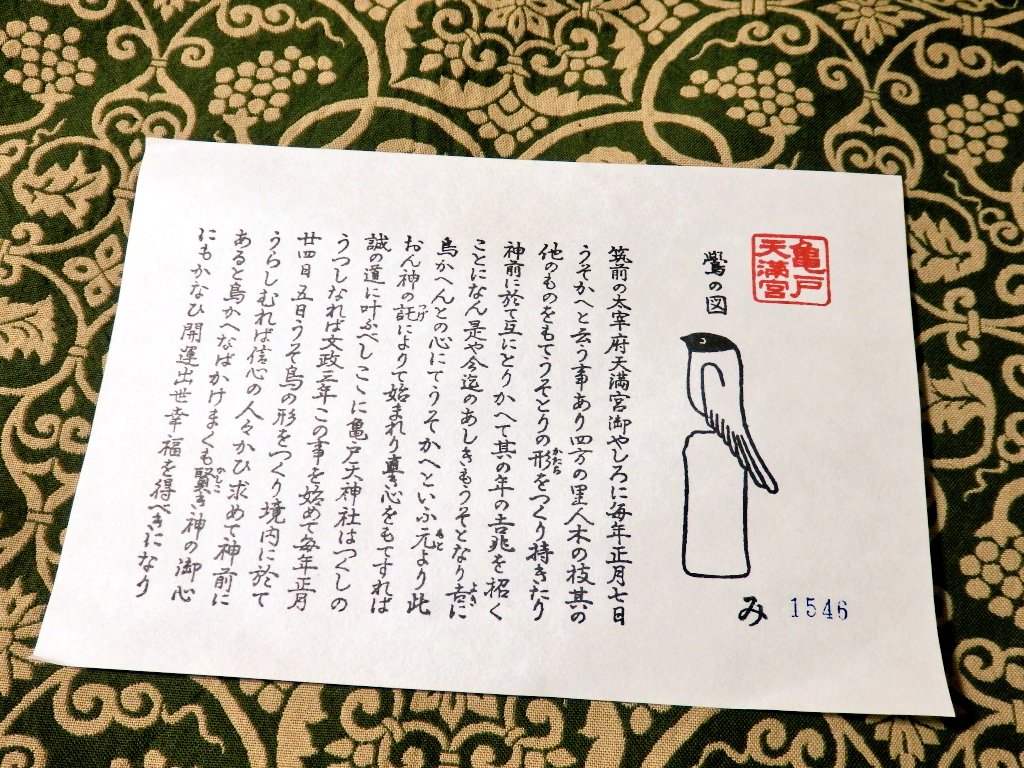 亀戸
天満宮
鷽の図
み 1546
筑前の太宰府天満宮御やしろに毎年正月七日
うそかへと云う事あり四方の里人木の枝其の
他のものをもてうそとりの形(かたち)をつくり持きたり
神前に於て互にとりかへて其の年の吉兆を招く
ことになん是や今迄のあしきもうそとなり吉(よき)に
鳥かへんとの心にてうそかへといふ元(もと)より此
おん神の託(つげ)によりて始まれり真き心をもてすれば
誠の道に叶ふべしこゝに亀戸天神社はつくしの
うつしなれば文政三年この事を始めて毎年正月
廿四日五日うそ鳥の形をつくり境内に於て
うらしむれば信心の人々かひ求めて神前に
あると鳥かへなばかけまくも賢(かしこ)き神の御心
にもかなひ開運出世幸福を得べきになり